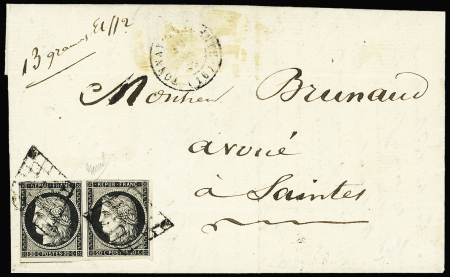 13 grammes Et 1/2
TONNAY
(16)
Monsieur Brunaud
avoué
à Saintes
REPUB. FRANC. REPUB. FRANC.
20 C POSTES 20 C 20 C POSTES 20 C